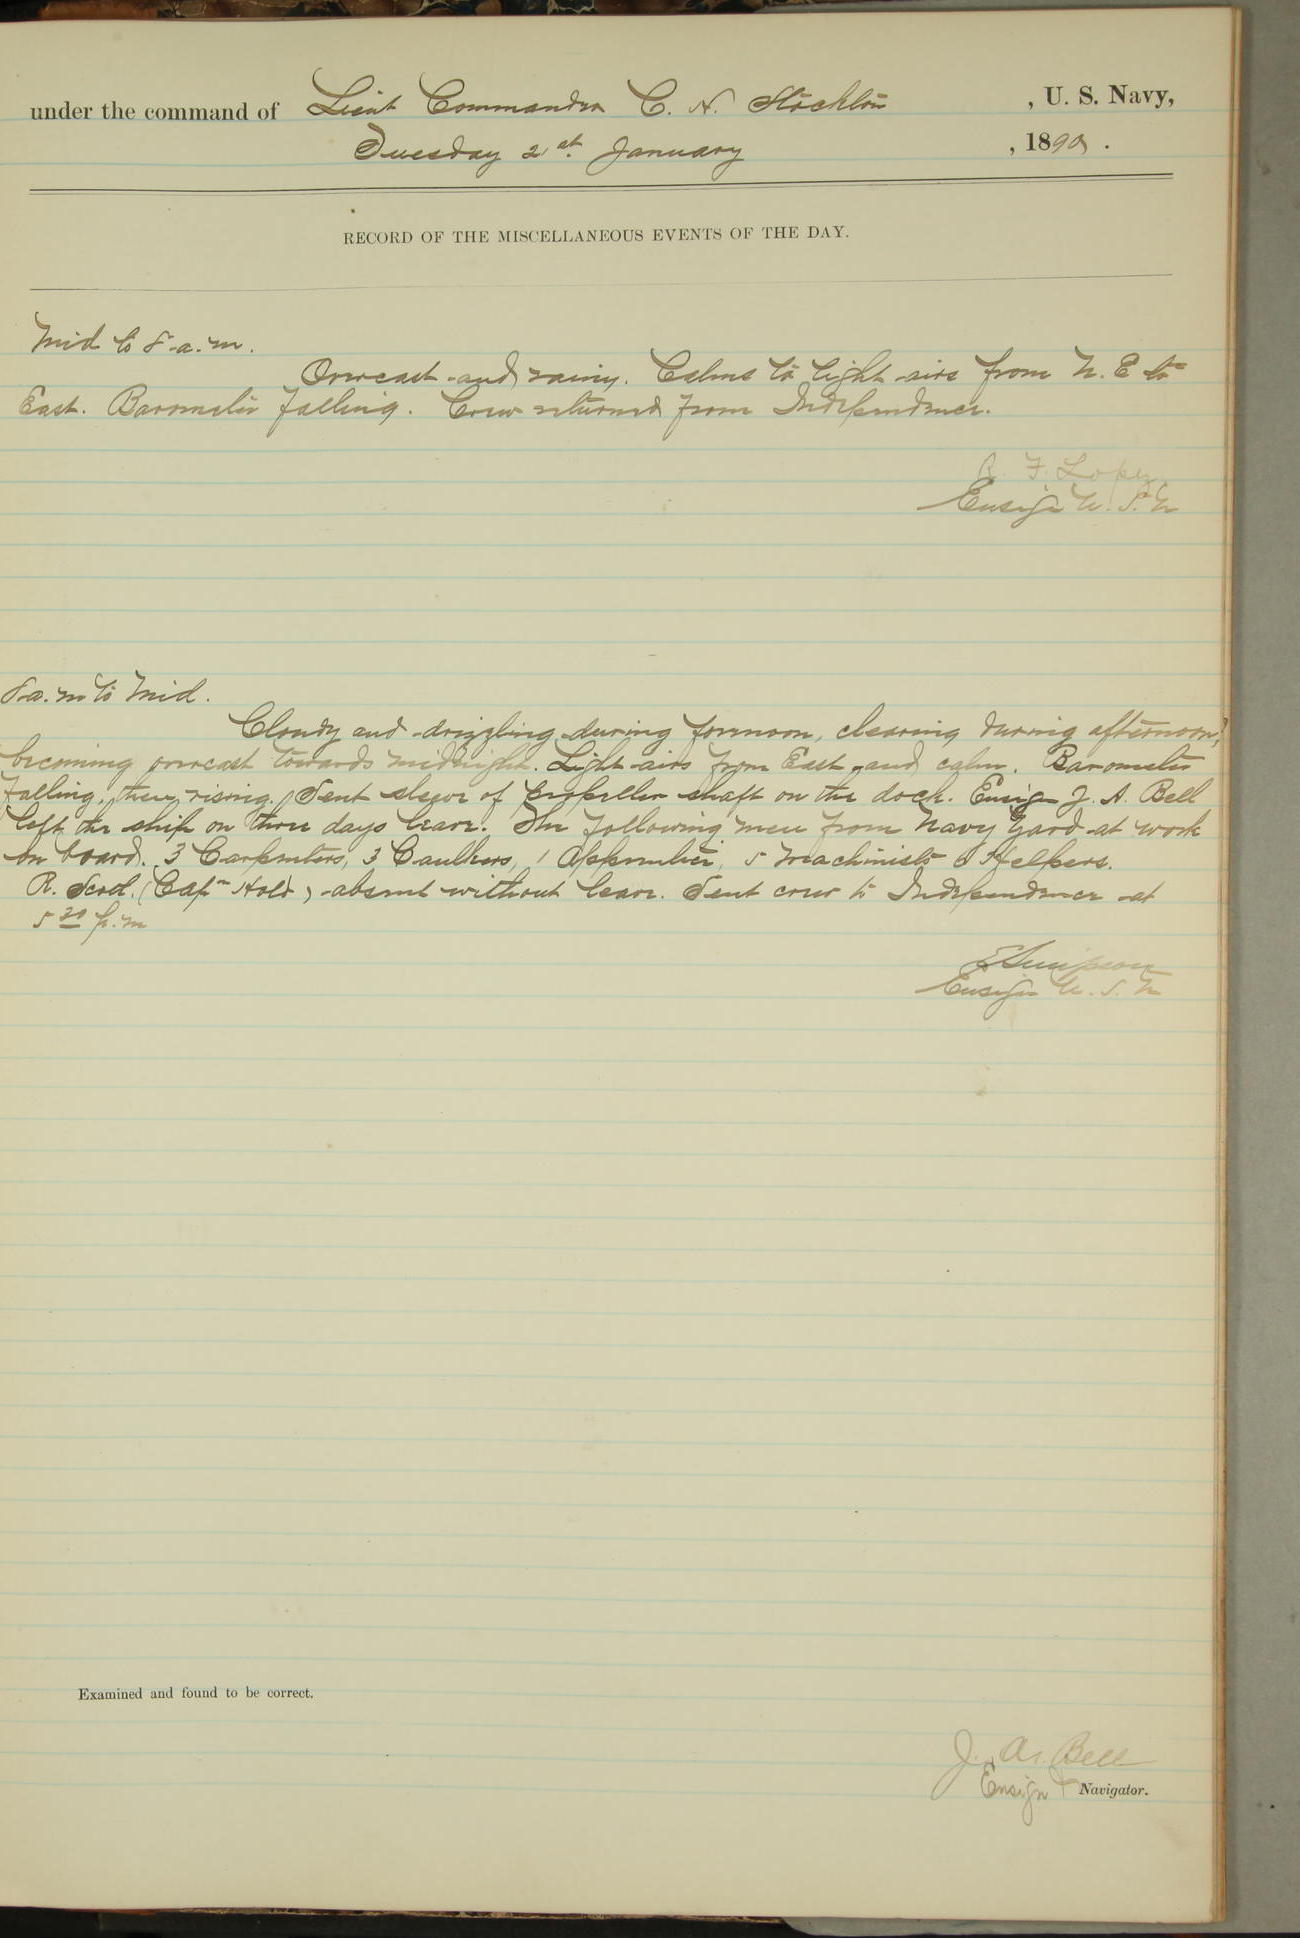 under the command of Lieut Commander C. H. Stockton , U. S. Navy,
Tuesday 21st January , 1890 .
RECORD OF THE MISCELLANEOUS EVENTS OF THE DAY.
Mid to 8 a.m.
Overcast and rainy. Calms to light airs from N. E to
East. Barometer falling. Crew returned from Independence.
R. F. Lopez
Ensign U. S. N
8 a. m to Mid.
Cloudy and drizzling during forenoon, clearing during afternoon,
becoming overcast towards midnight. Light airs from East and calm. Barometer
falling, then rising. Sent sleeve of propeller shaft on the dock. Ensign J. A. Bell
left the ship on three days leave. The following men from Navy Yard at work
on board. 3 Carpenters, 3 Caulkers, 1 Apprentice, 5 Machinists 6 Helpers.
R. (Capt Hold) absent without leave. Sent crew to Independence at
5 30 p. m
E Simpson
Ensign U. S. N
Examined and found to be correct.
J. A. Bell
Ensign Navigator.